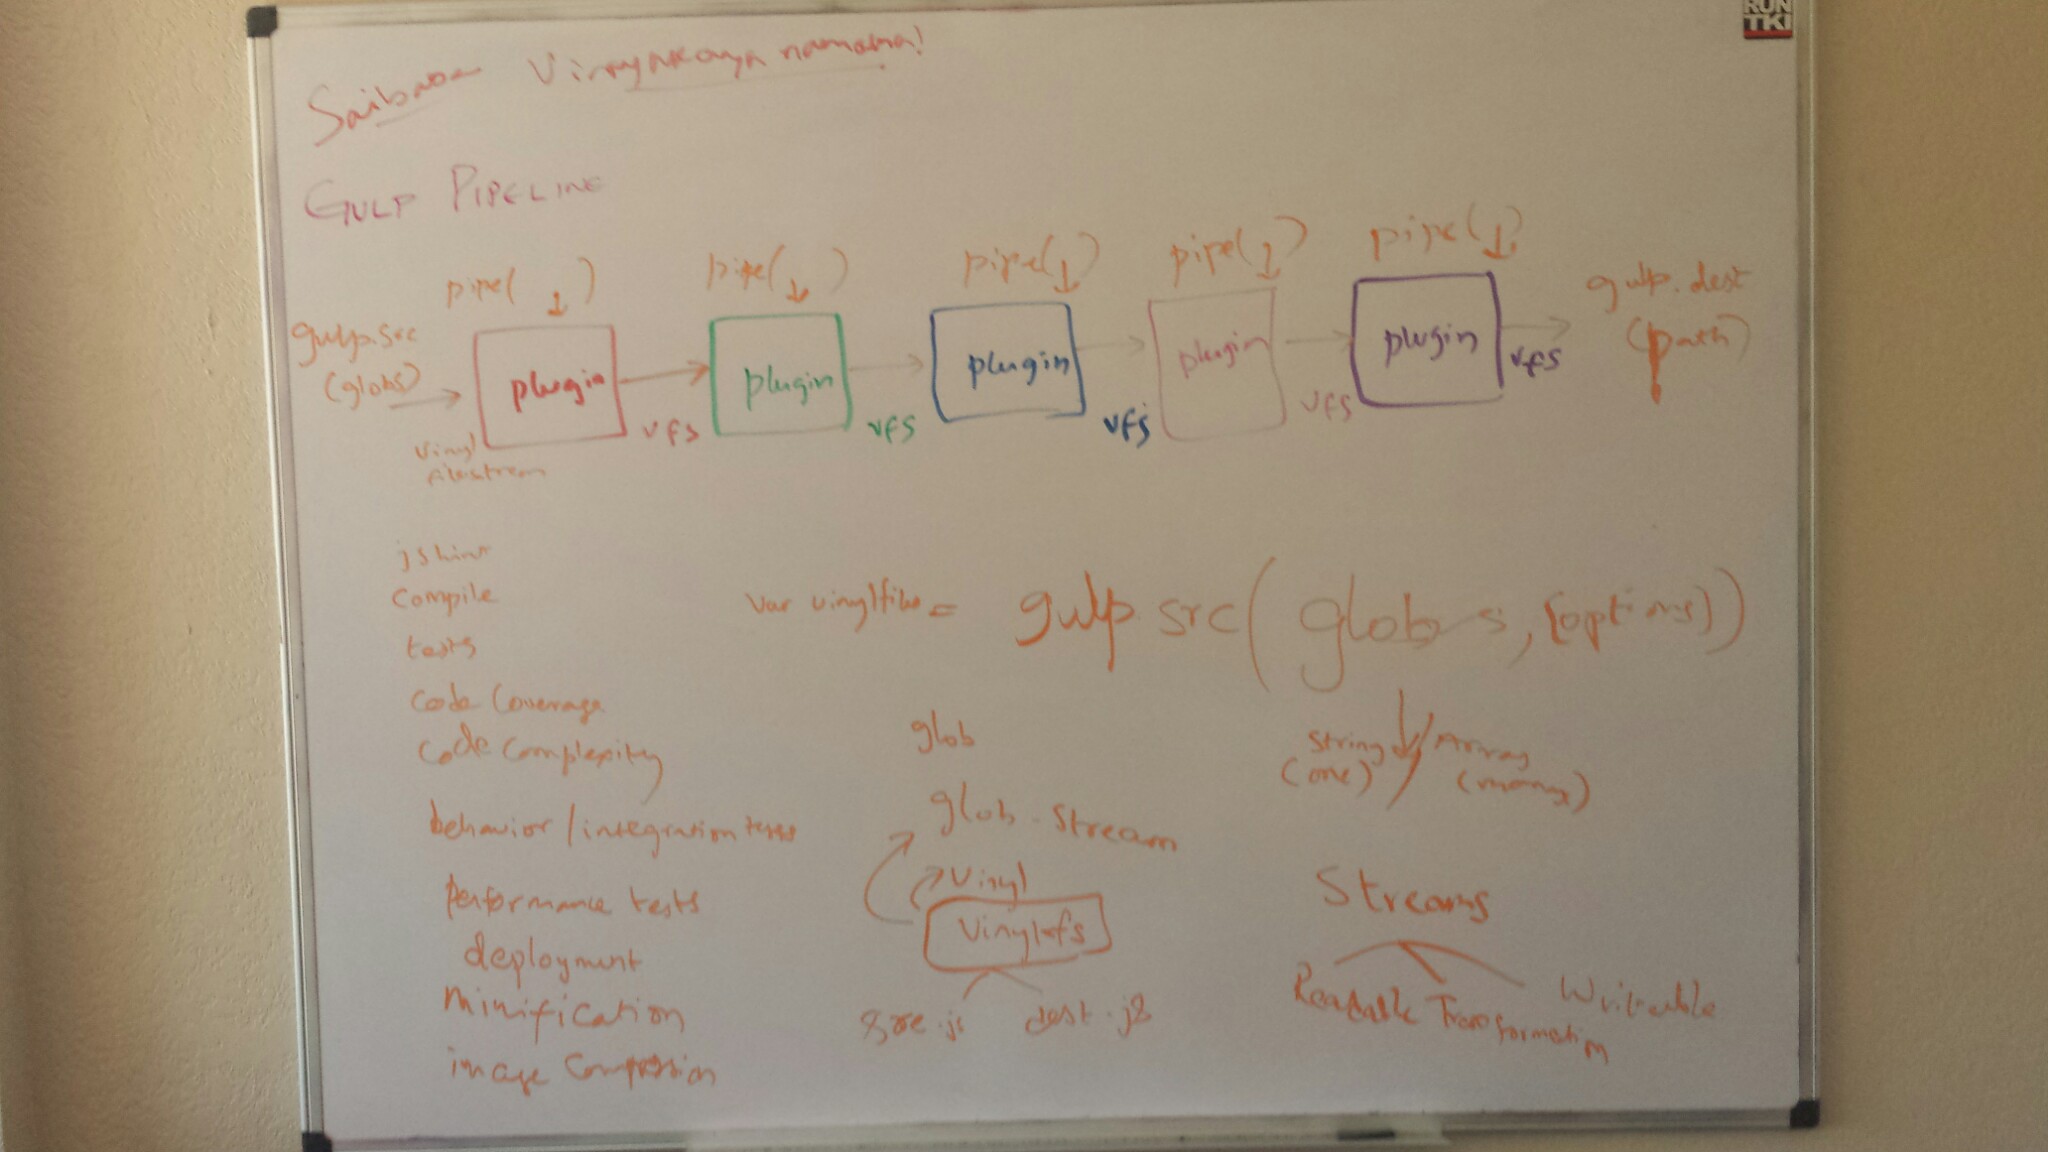 Saibaba Vinayakaya namaha!
RUN
TKI
GULP PIPELINE
pipe( ↓ ) pipe( ↓ ) pipe( ↓ ) pipe( ↓ ) pipe( ↓ )
gulp.src
(globs)
plugin plugin plugin plugin plugin
gulp.dest
(path)
vfs vfs vfs vfs vfs
vinyl
filestream
jshint
compile
tests
code coverage
code complexity
behavior/integration tests
performance tests
deployment
minification
image compression
var vinylfiles = gulp.src(globs, [options])
String / Array
(one) (many)
glob
glob-stream
vinyl
vinyl-fs
dest.js
Streams
Readable Transformation Writeable